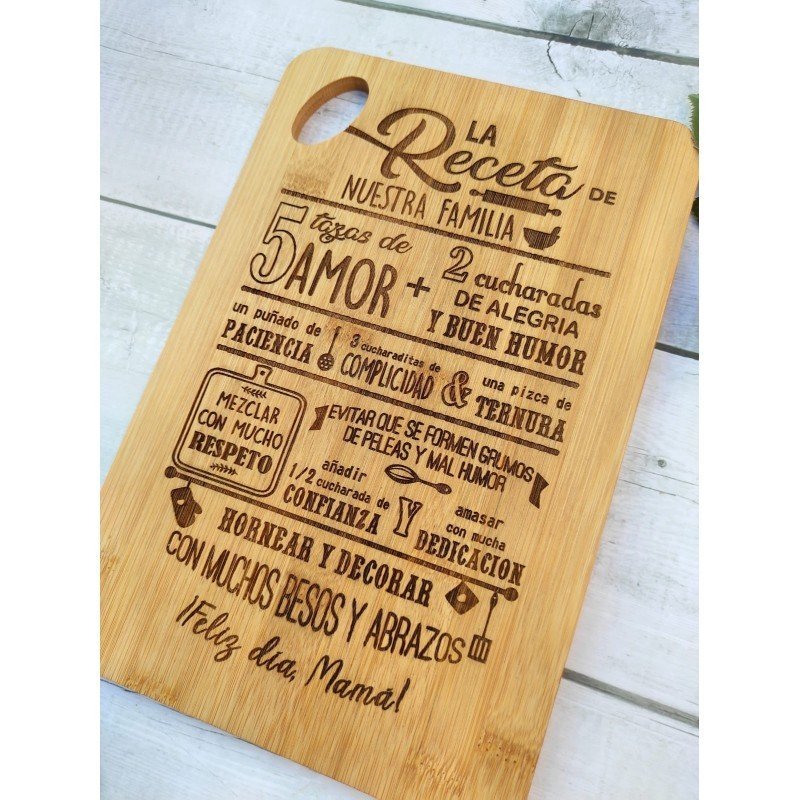 LA
Receta DE
NUESTRA FAMILIA
5 tazas de
AMOR +
2 cucharadas
DE ALEGRIA
Y BUEN HUMOR
un puñado de
PACIENCIA
3 cucharaditas de
COMPLICIDAD
&
una pizca de
TERNURA
MEZCLAR
CON MUCHO
RESPETO
EVITAR QUE SE FORMEN GRUMOS
DE PELEAS Y MAL HUMOR
añadir
1/2 cucharada de
CONFIANZA
Y
amasar
con mucha
DEDICACION
HORNEAR Y DECORAR
CON MUCHOS BESOS Y ABRAZOS
¡Feliz día, Mamá!